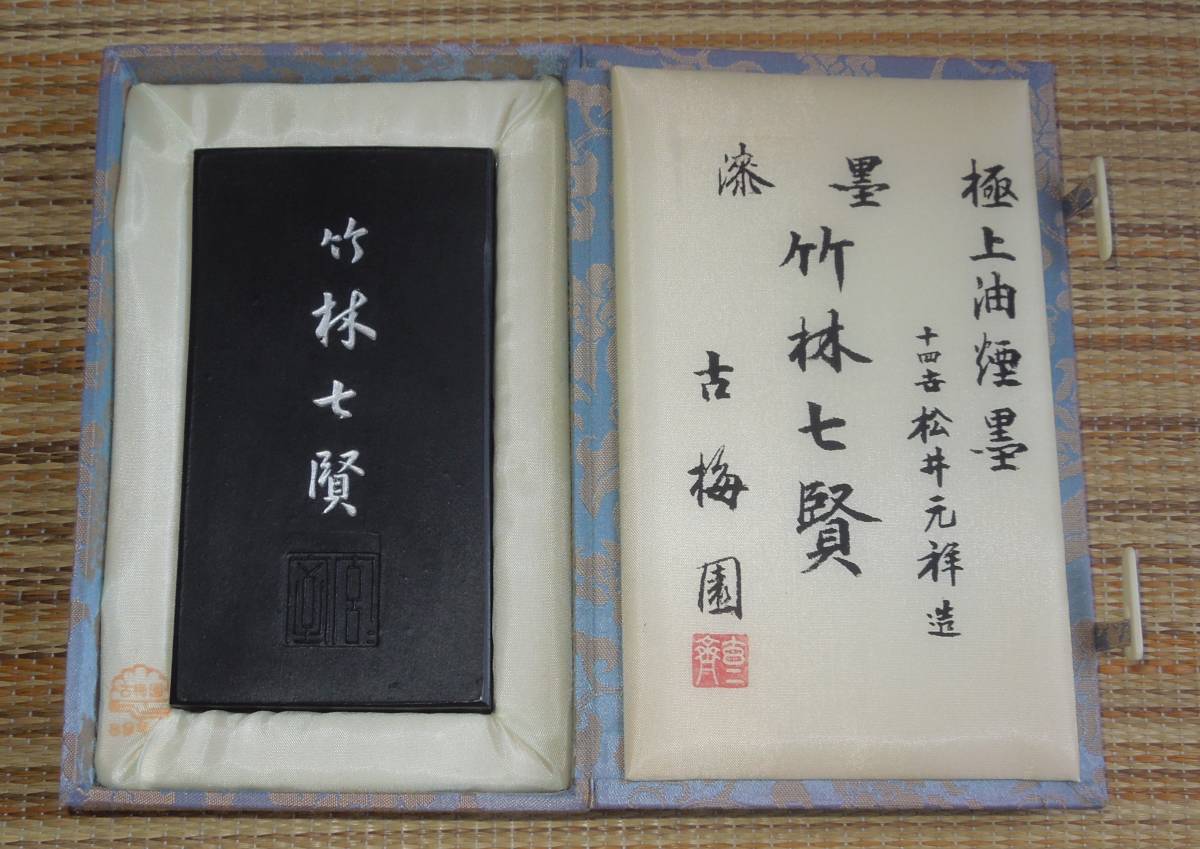 極上油煙墨
十四世松井元祥造
漆墨
竹林七賢
古梅園
竹林七賢
古梅園